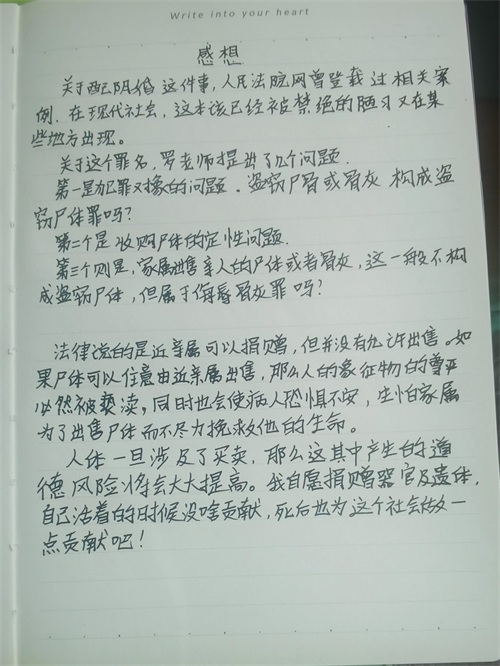 Write into your heart
感想
关于配阴婚这件事，人民法院网曾登载过相关案
例．在现代社会，这本该已经被禁绝的陋习又在某
些地方出现。
关于这个罪名，罗老师提出了几个问题．
第一是犯罪对象的问题．盗窃尸骨或骨灰 构成盗
窃尸体罪吗？
第二个是收购尸体的定性问题．
第三个则是，家属出售亲人的尸体或者骨灰，这一般不构
成盗窃尸体，但属于侮辱骨灰罪吗？
法律说的是近亲属可以捐赠，但并没有允许出售。如
果尸体可以任意由近亲属出售，那么人的象征物的尊严
必然被亵渎，同时也会使病人恐惧不安，生怕家属
为了出售尸体而不尽力挽救他的生命。
人体一旦涉及了买卖，那么这其中产生的道
德风险将会大大提高。我自愿捐赠器官及遗体，
自己活着的时候没啥贡献，死后也为这个社会做一
点贡献吧！